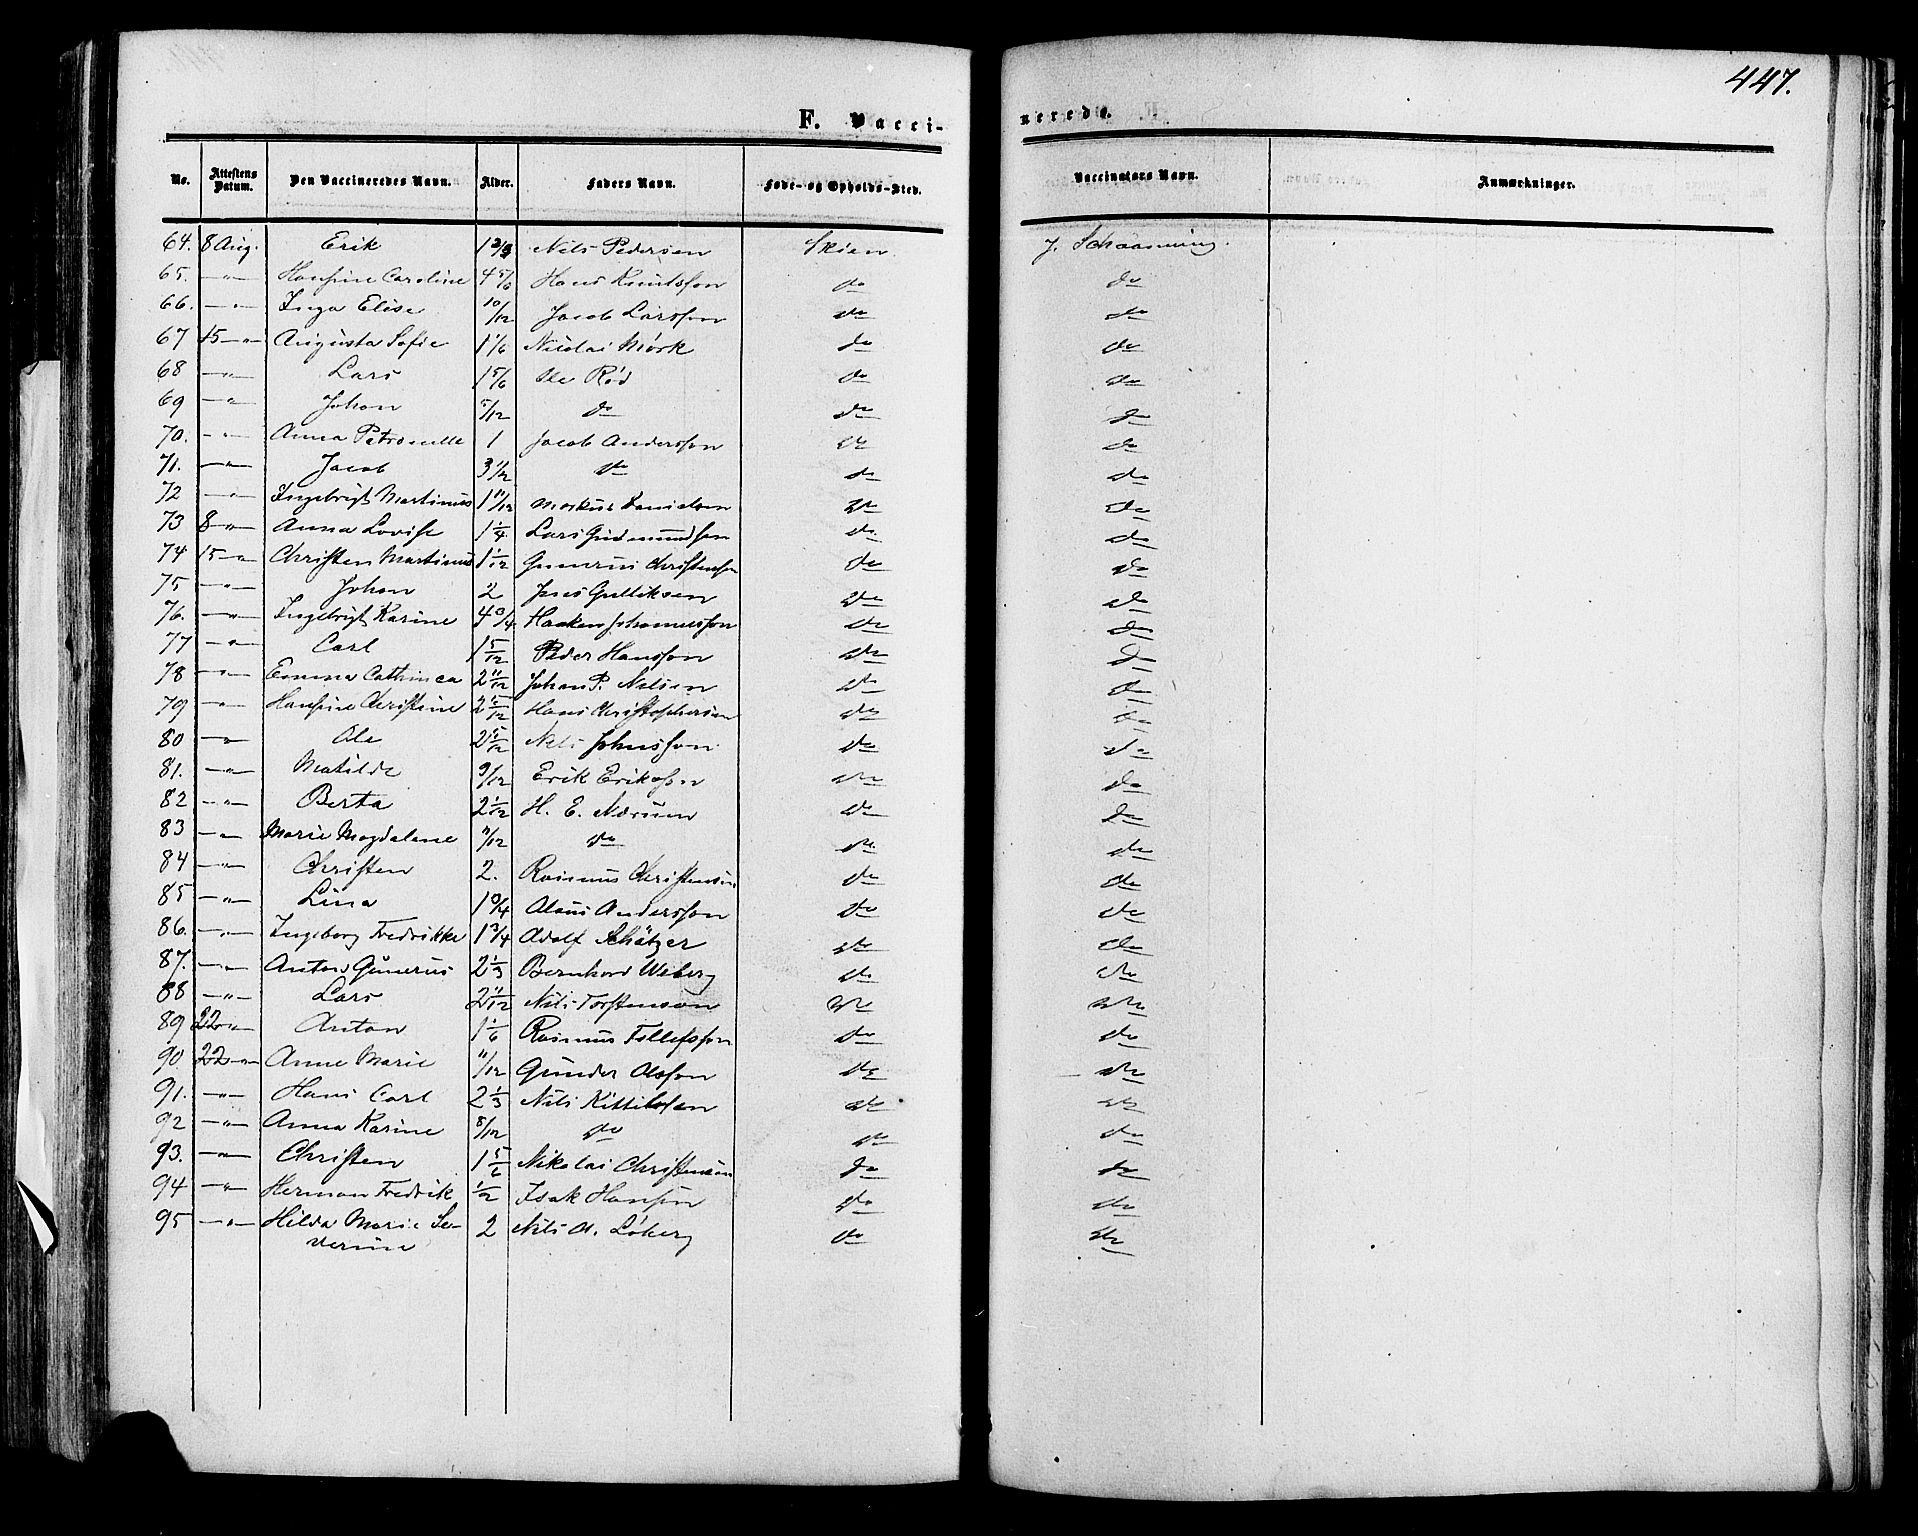 447.
F. Vaccinerede.
No. Attestens Datum. Den Vaccineredes Navn. Alder. Faders Navn. Føde- og Opholds-Sted. Vaccinators Navn. Anmærkninger.
64. 8 Aug. Erik 1 2/3 Nils Pedersen Skien J. Schaanning.
65. —"— Hansine Caroline 4 5/6 Hans Knutsson do do
66. —"— Inga Elise 10/12 Jacob Larsson do do
67 15—"— Augusta Sofie 1 1/6 Nicolai Mørk do do
68 —"— Lars 1 5/6 Ole Rød do do
69 —"— Johan 5/12 do do do
70. —"— Anna Petronelle 1 Jacob Andersson do do
71. —"— Jacob 3 1/2 do do do
72 —"— Ingebrigt Martinus 1 11/12 Markus Danielsen do do
73 8—"— Anna Lovise 1 1/4 Lars Gudmundsen do do
74 15—"— Christen Martinus 1 1/12 Gunerius Christensen do do
75 —"— Johan 2 Jens Gulliksen do do
76. —"— Ingebrigt Karine 4 3/4 Haaken Johannesson do do
77 —"— Carl 1 5/12 Peder Hansson do do
78 —"— Emma Cathinca 2 11/12 Johan P. Nilsen do do
79 —"— Hansine Christine 2 5/12 Hans Christophersen do do
80 —"— Ole 2 5/12 Nils Johnsson do do
81. —"— Matilde 9/12 Erik Eriksson do do
82 —"— Berta 2 1/12 H. E. Nærum do do
83 —"— Marie Magdalene 11/12 do do do
84 —"— Christen 2. Rasmus Christensen do do
85 —"— Lina 1 3/4 Olaus Andersson do do
86. —"— Ingeborg Fredrikke 1 3/4 Adolf Schätzer do do
87. —"— Anton Gunerius 2 1/3 Bernhard Weberg do do
88 —"— Lars 2 11/12 Nils Torstenson do do
89 22—"— Anton 1 1/6 Rasmus Tollefsson do do
90 22—"— Anne Marie 11/12 Gunder Olsson do do
91. —"— Hans Carl 2 1/3 Nils Kittilsen do do
92 —"— Anna Karine 8/12 do do do
93. —"— Christen 1 5/6 Nikolai Christensen do do
94 —"— Herman Fredrik 1/2 Isak Hansen do do
95 —"— Hilda Marie Se- 2 Nils A. Løberg do do
verine